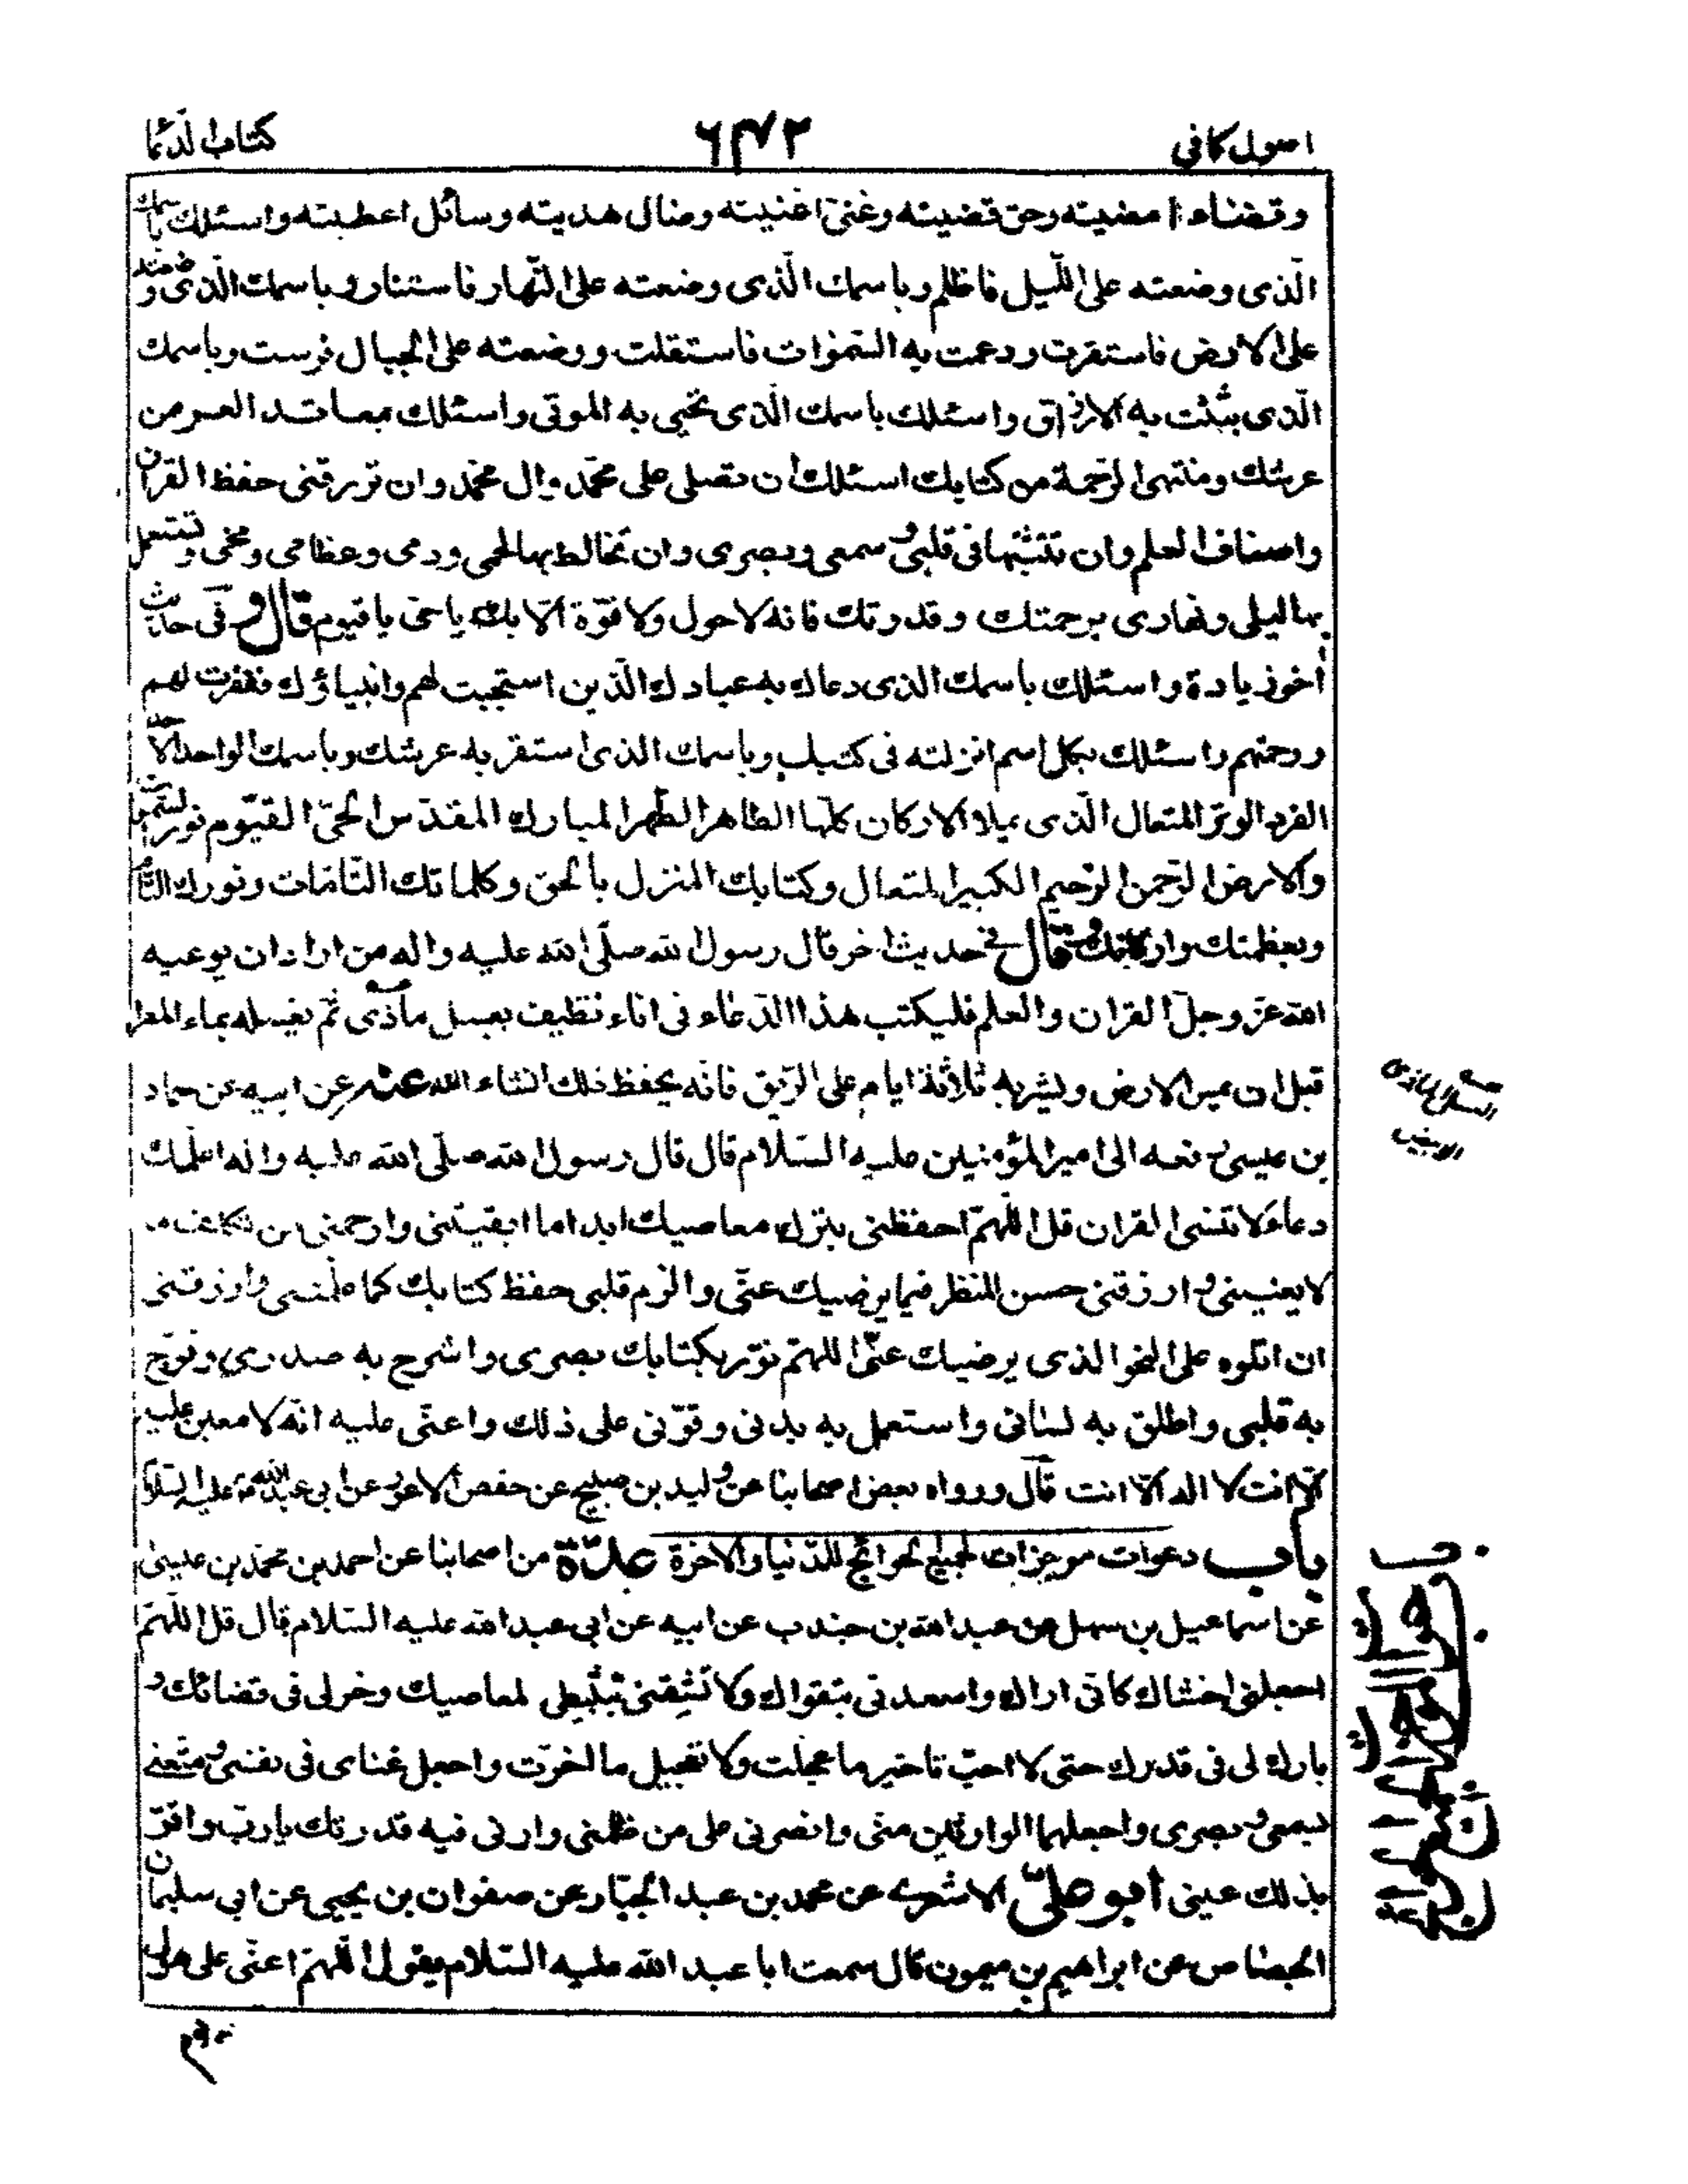 اصول كافى
۶۴۲
كتاب الدعا
وقضاء امضيته وحق قضيته وغنى اغنيته وضال هديته وسائل اعطيته واسئلك باسمك
الّذى وضعته على اللّيل فاظلم وباسمك الّذى وضعته على النّهار فاستنار وباسمك الّذى وضعته
على الارض فاستقرت ودعمت به السّموات فاستقلت ووضعته على الجبال فرست وباسمك
الّذى بثثت به الارزاق واسئلك باسمك الّذى تحيى به الموتى واسئلك بمعاقد العز من
عرشك ومنتهى الرّحمة من كتابك اسئلك ان تصلى على محمّد وال محمّد وان ترزقنى حفظ القران
واصناف العلم وان تثبتها فى قلبى وسمعى وبصرى وان تخالط بها لحمى ودمى وعظامى ومخى وتستعمل
بها ليلى ونهارى برحمتك وقدرتك فانه لا حول ولا قوّة الّا بك يا حى يا قيوم قال وفى حديث
أخر زيادة واسئلك باسمك الذى دعاك به عبادك الّذين استجبت لهم وانبياؤك فغفرت لهم
ورحمتهم واسئلك بكل اسم انزلته فى كتبك وباسمك الذى استقر به عرشك وباسمك الواحد الاحد
الفرد الوتر المتعال الّذى يملا الاركان كلّها الطاهر الطّهر المبارك المقدّس الحىّ القيّوم نور السّموات
والارض الرّحمن الرّحيم الكبير المتعال وكتابك المنزل بالحق وكلماتك التّامّات ونورك التّام
وبعظمتك واركانك وقال فى حديث اخر قال رسول الله صلّى الله عليه واله من اراد ان يوعيه
الله عزّ وجلّ القران والعلم فليكتب هذا الدّعاء فى اناء نظيف بعسل ماذى ثمّ يغسله بماء المطر
قبل ان يمس الارض ويشربه ثلاثة ايام على الرّيق فانّه يحفظ ذلك انشاء الله عنه عن ابيه عن حماد
بن عيسى رفعه الى امير المؤمنين عليه السّلام قال قال رسول الله صلّى الله عليه واله اعلّمك
دعاء لا تنسى القران قل اللّهمّ احفظنى بترك معاصيك ابدا ما ابقيتنى وارحمنى من تكلف ما
لا يعنينى وارزقنى حسن المنظر فيما يرضيك عنّى والزم قلبى حفظ كتابك كما علّمتنى وارزقنى
ان اتلوه على النحو الذى يرضيك عنّى اللهمّ نوّر بكتابك بصرى واشرح به صدرى وفرّج
به قلبى واطلق به لسانى واستعمل به بدنى وقوّنى على ذلك واعنّى عليه انّه لا معين عليه
الّا انت لا اله الّا انت قال ورواه بعض اصحابنا عن وليد بن صبيح عن حفص الاعور عن ابى عبد الله عليه السّلام
باب دعوات موجزات لجميع الحوائج للدّنيا والاخرة عدّة من اصحابنا عن احمد بن محمّد بن عيسى
عن اسماعيل بن سهل عن عبد الله بن جندب عن ابيه عن ابى عبد الله عليه السّلام قال قل اللّهمّ
اجعلنى اخشاك كانى اراك واسعدنى بتقواك ولا تشقنى بنشطى لمعاصيك وخر لى فى قضائك و
بارك لى فى قدرك حتى لا احبّ تاخير ما عجلت ولا تعجيل ما اخرّت واجعل غناى فى نفسى ومتّعنى
بسمعى وبصرى واجعلهما الوارثين منّى وانصرنى على من ظلمنى وارنى فيه قدرتك يا ربّ واقرّ
بذلك عينى أبو علىّ الاشعرى عن محمد بن عبد الجبّار عن صفوان بن يحيى عن ابى سليمان
الجصّاص عن ابراهيم بن ميمون قال سمعت ابا عبد الله عليه السّلام يقول اللّهمّ اعنّى على هول